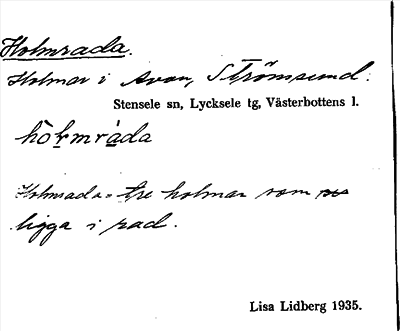 Holmrada.
Holmar i Avan, Strömsund.
Stensele sn, Lycksele tg, Västerbottens l.
hòḷmràda
Holmrada = tre holmar som
ligga i rad.
Lisa Lidberg 1935.